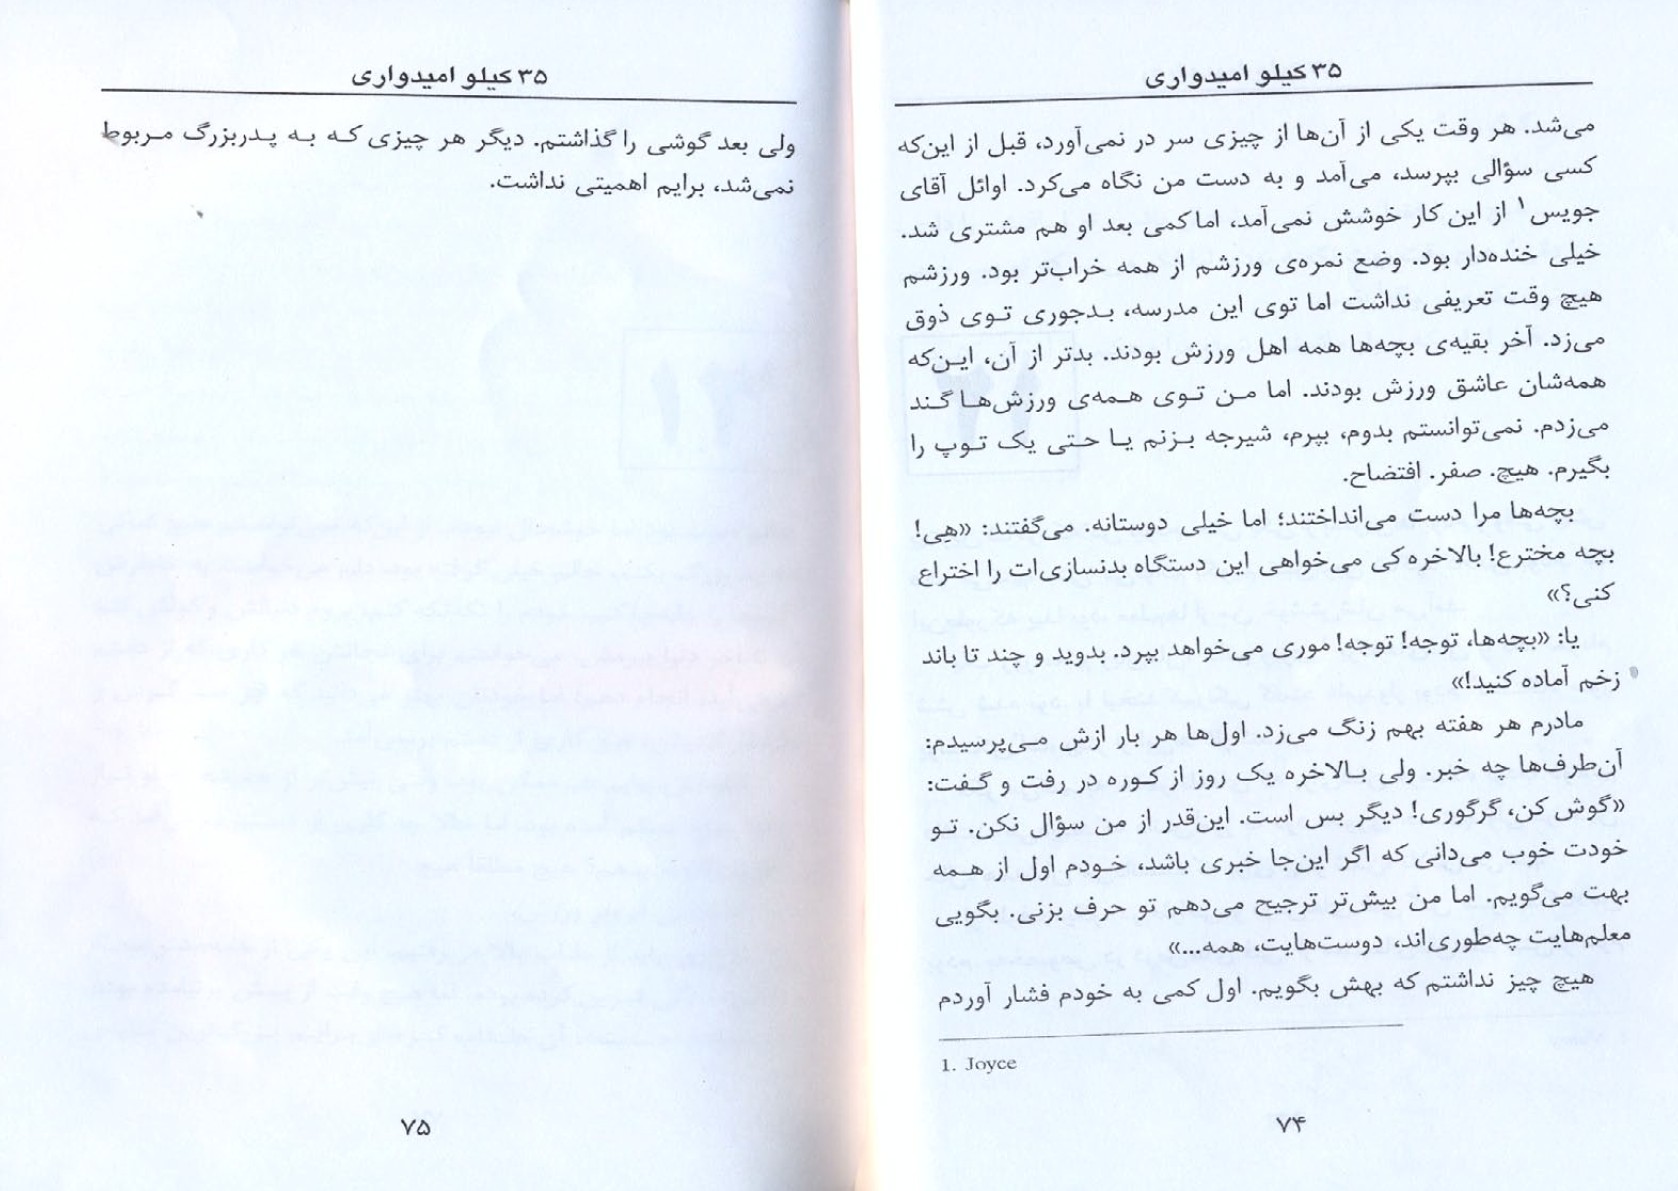 ۳۵ کیلو امیدواری
می‌شد. هر وقت یکی از آن‌ها از چیزی سر در نمی‌آورد، قبل از این‌که
کسی سؤالی بپرسد، می‌آمد و به دست من نگاه می‌کرد. اوائل آقای
جویس۱ از این کار خوشش نمی‌آمد، اما کمی بعد او هم مشتری شد.
خیلی خنده‌دار بود. وضع نمره‌ی ورزشم از همه خراب‌تر بود. ورزشم
هیچ وقت تعریفی نداشت اما توی این مدرسه، بدجوری توی ذوق
می‌زد. آخر بقیه‌ی بچه‌ها همه اهل ورزش بودند. بدتر از آن، این‌که
همه‌شان عاشق ورزش بودند. اما من توی همه‌ی ورزش‌ها گند
می‌زدم. نمی‌توانستم بدوم، بپرم، شیرجه بزنم یا حتی یک توپ را
بگیرم. هیچ. صفر. افتضاح.
بچه‌ها مرا دست می‌انداختند؛ اما خیلی دوستانه. می‌گفتند: «هِی!
بچه مخترع! بالاخره کی می‌خواهی این دستگاه بدنسازی‌ات را اختراع
کنی؟»
یا: «بچه‌ها، توجه! توجه! موری می‌خواهد بپرد. بدوید و چند تا باند
زخم آماده کنید!»
مادرم هر هفته بهم زنگ می‌زد. اول‌ها هر بار ازش می‌پرسیدم:
آن‌طرف‌ها چه خبر. ولی بالاخره یک روز از کوره در رفت و گفت:
«گوش کن، گرگوری! دیگر بس است. این‌قدر از من سؤال نکن. تو
خودت خوب می‌دانی که اگر این‌جا خبری باشد، خودم اول از همه
بهت می‌گویم. اما من بیش‌تر ترجیح می‌دهم تو حرف بزنی. بگویی
معلم‌هایت چه‌طوری‌اند، دوست‌هایت، همه...»
هیچ چیز نداشتم که بهش بگویم. اول کمی به خودم فشار آوردم
1. Joyce
۷۴
۳۵ کیلو امیدواری
ولی بعد گوشی را گذاشتم. دیگر هر چیزی که به پدربزرگ مربوط
نمی‌شد، برایم اهمیتی نداشت.
۷۵